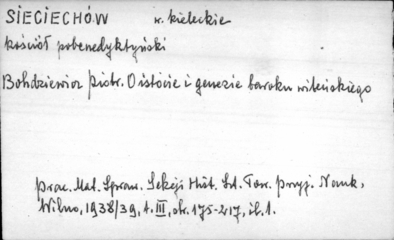 SIECIECHÓW w. kieleckie
kościół pobenedyktyński
Bohdziewicz Piotr. O istocie i genezie baroku wileńskiego
Prac. Mat. Spraw. Sekcji Hist. Szt. Tow. Przyj. Nauk,
Wilno, 1938/39, t. III, str. 175-217, il. 1.